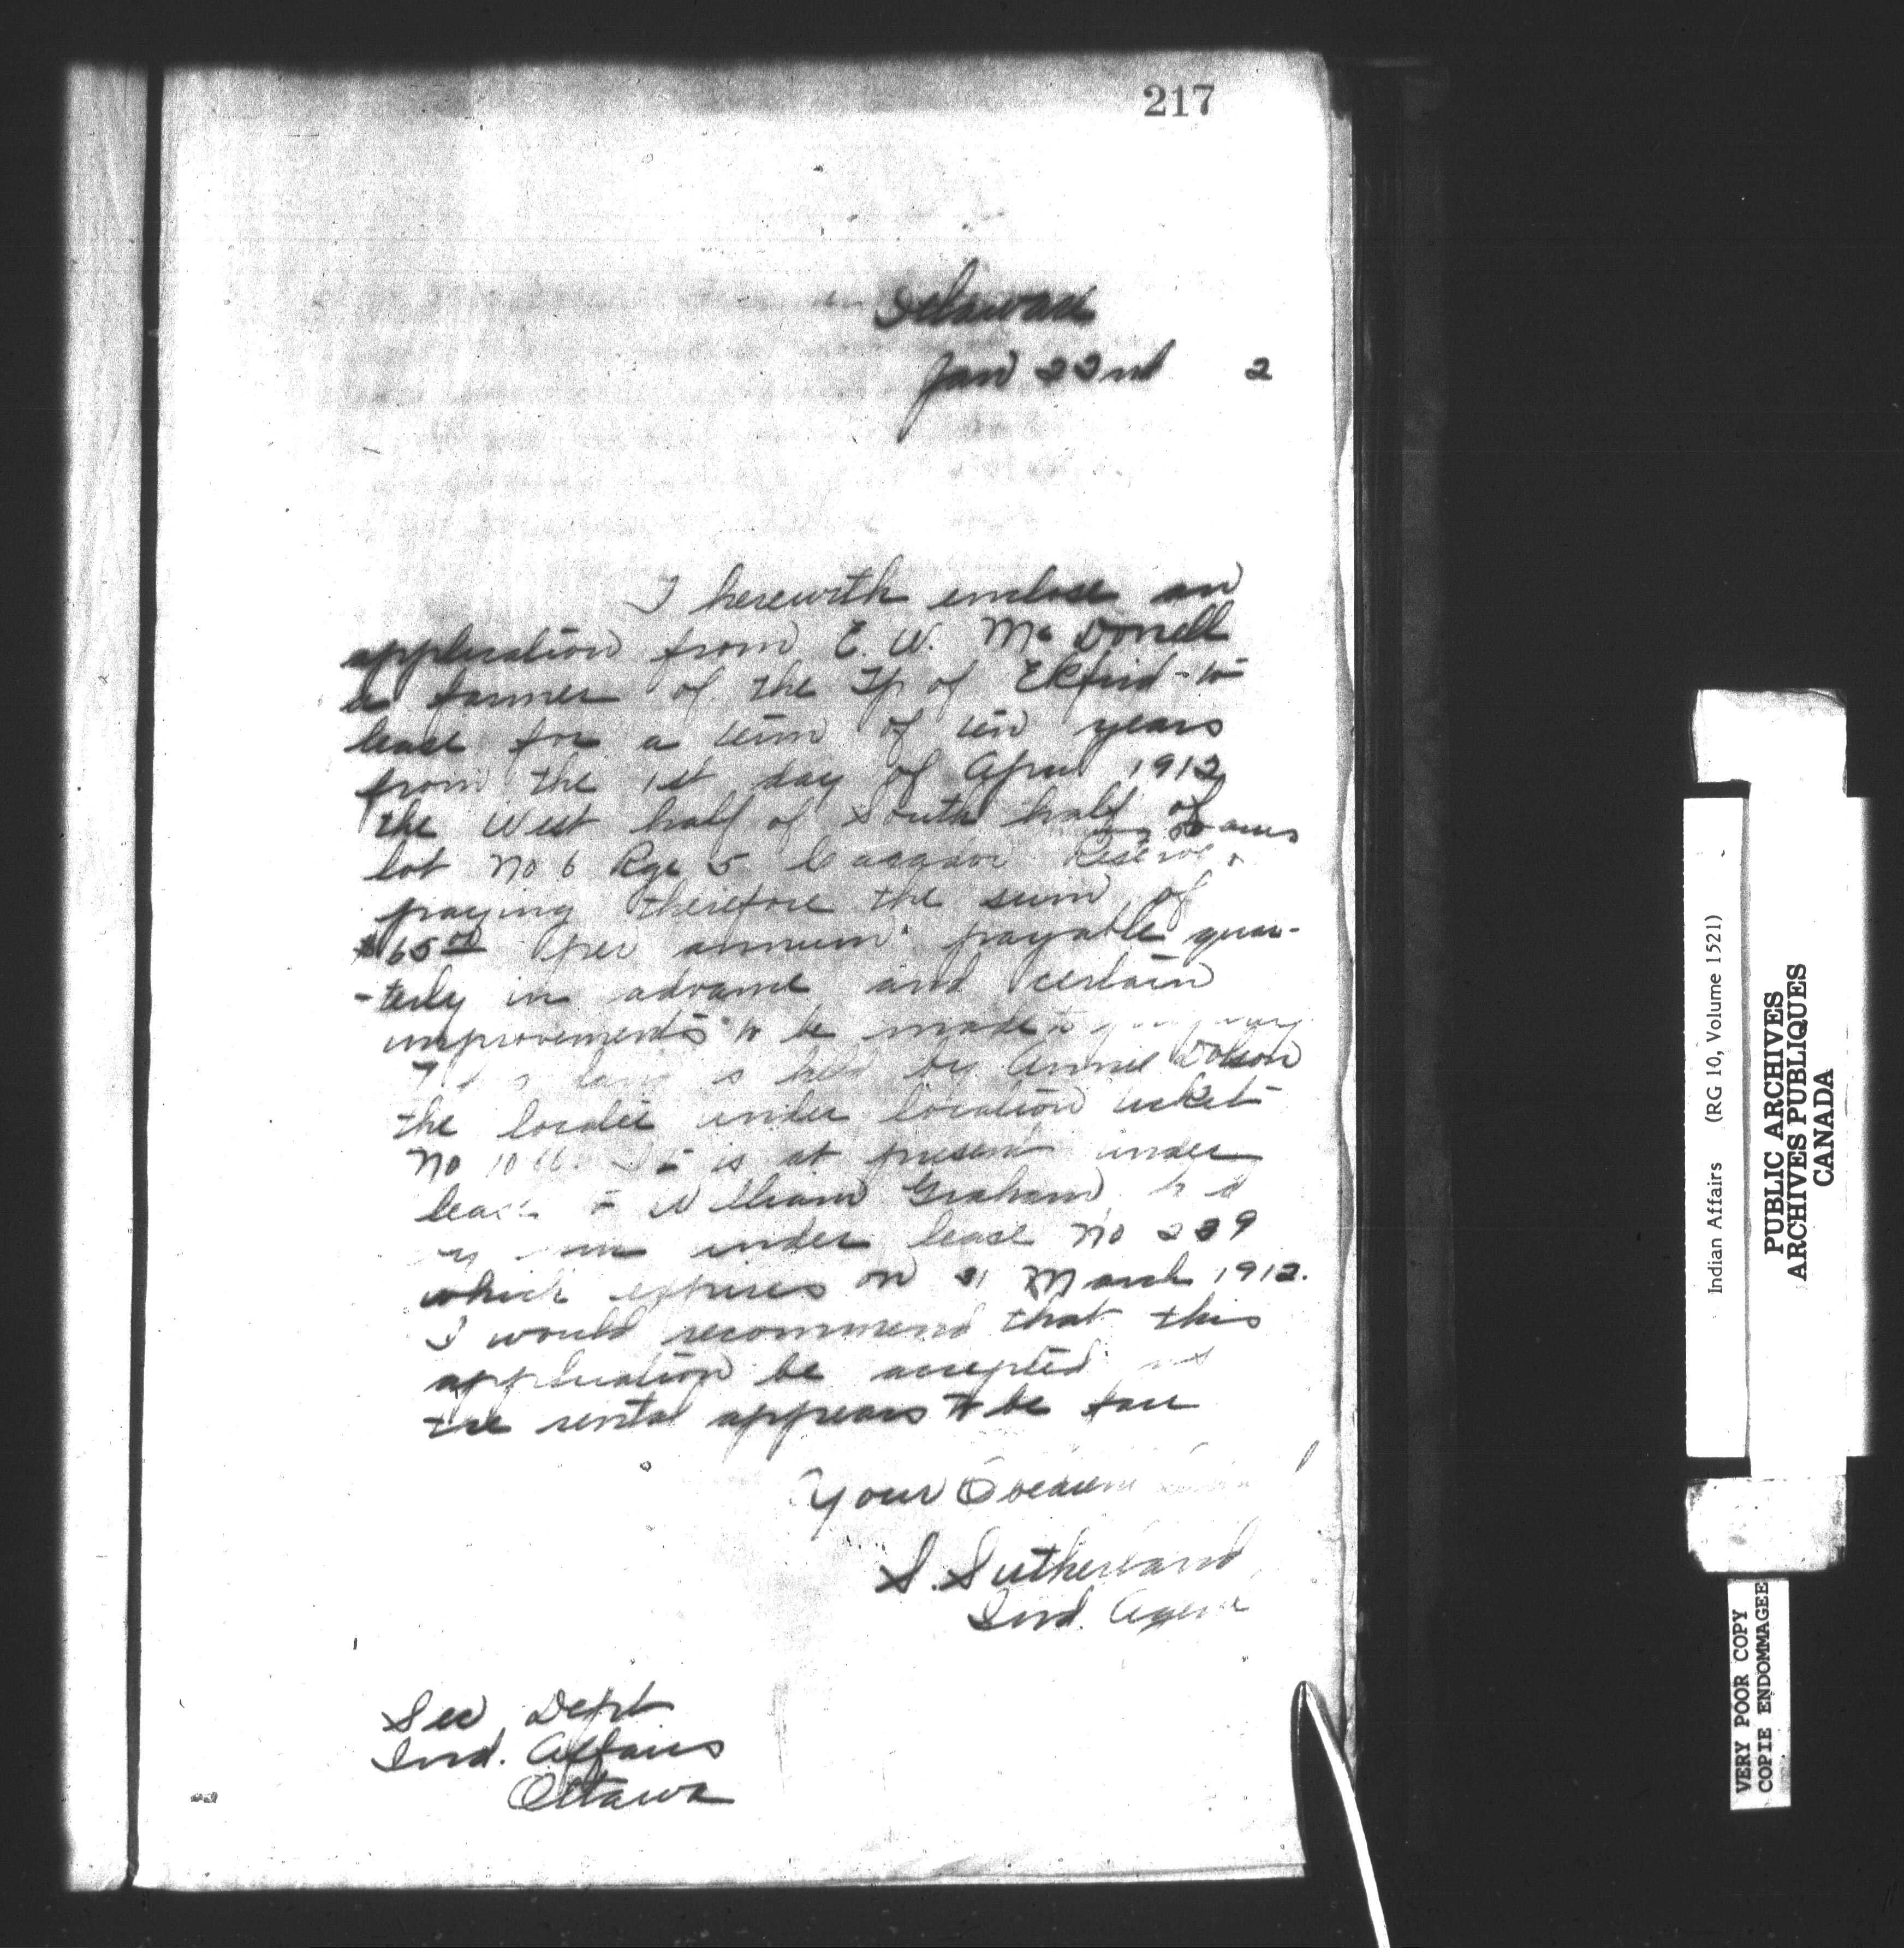 217
Delaware
Jan 22nd 2
I herewith enclose an
application from E. W. McDonell
a farmer of the Tp of Ekfrid to
lease for a term of ten years
from the 1st day of April 1912
the West half of South half of
50 acres
lot No 6 Rge 5 Caradoc Reserve,
paying therefore the sum of
$65 00 per annum payable quar-
-terly in advance and certain
improvements to be made
land is held by Annie Dolson
the locatee under location ticket
No 1066. It is at present under
lease to William Graham
under lease No 239
which expires on 31 March 1912.
I would recommend that this
application be accepted as
the rental appears to be fair
Your Obedient
S. Sutherland
Ind. Agent
Sec Dept
Ind. Affairs
Ottawa
Indian Affairs (RG 10, Volume 1521)
PUBLIC ARCHIVES
ARCHIVES PUBLIQUES
CANADA
VERY POOR COPY
COPIE ENDOMMAGEE